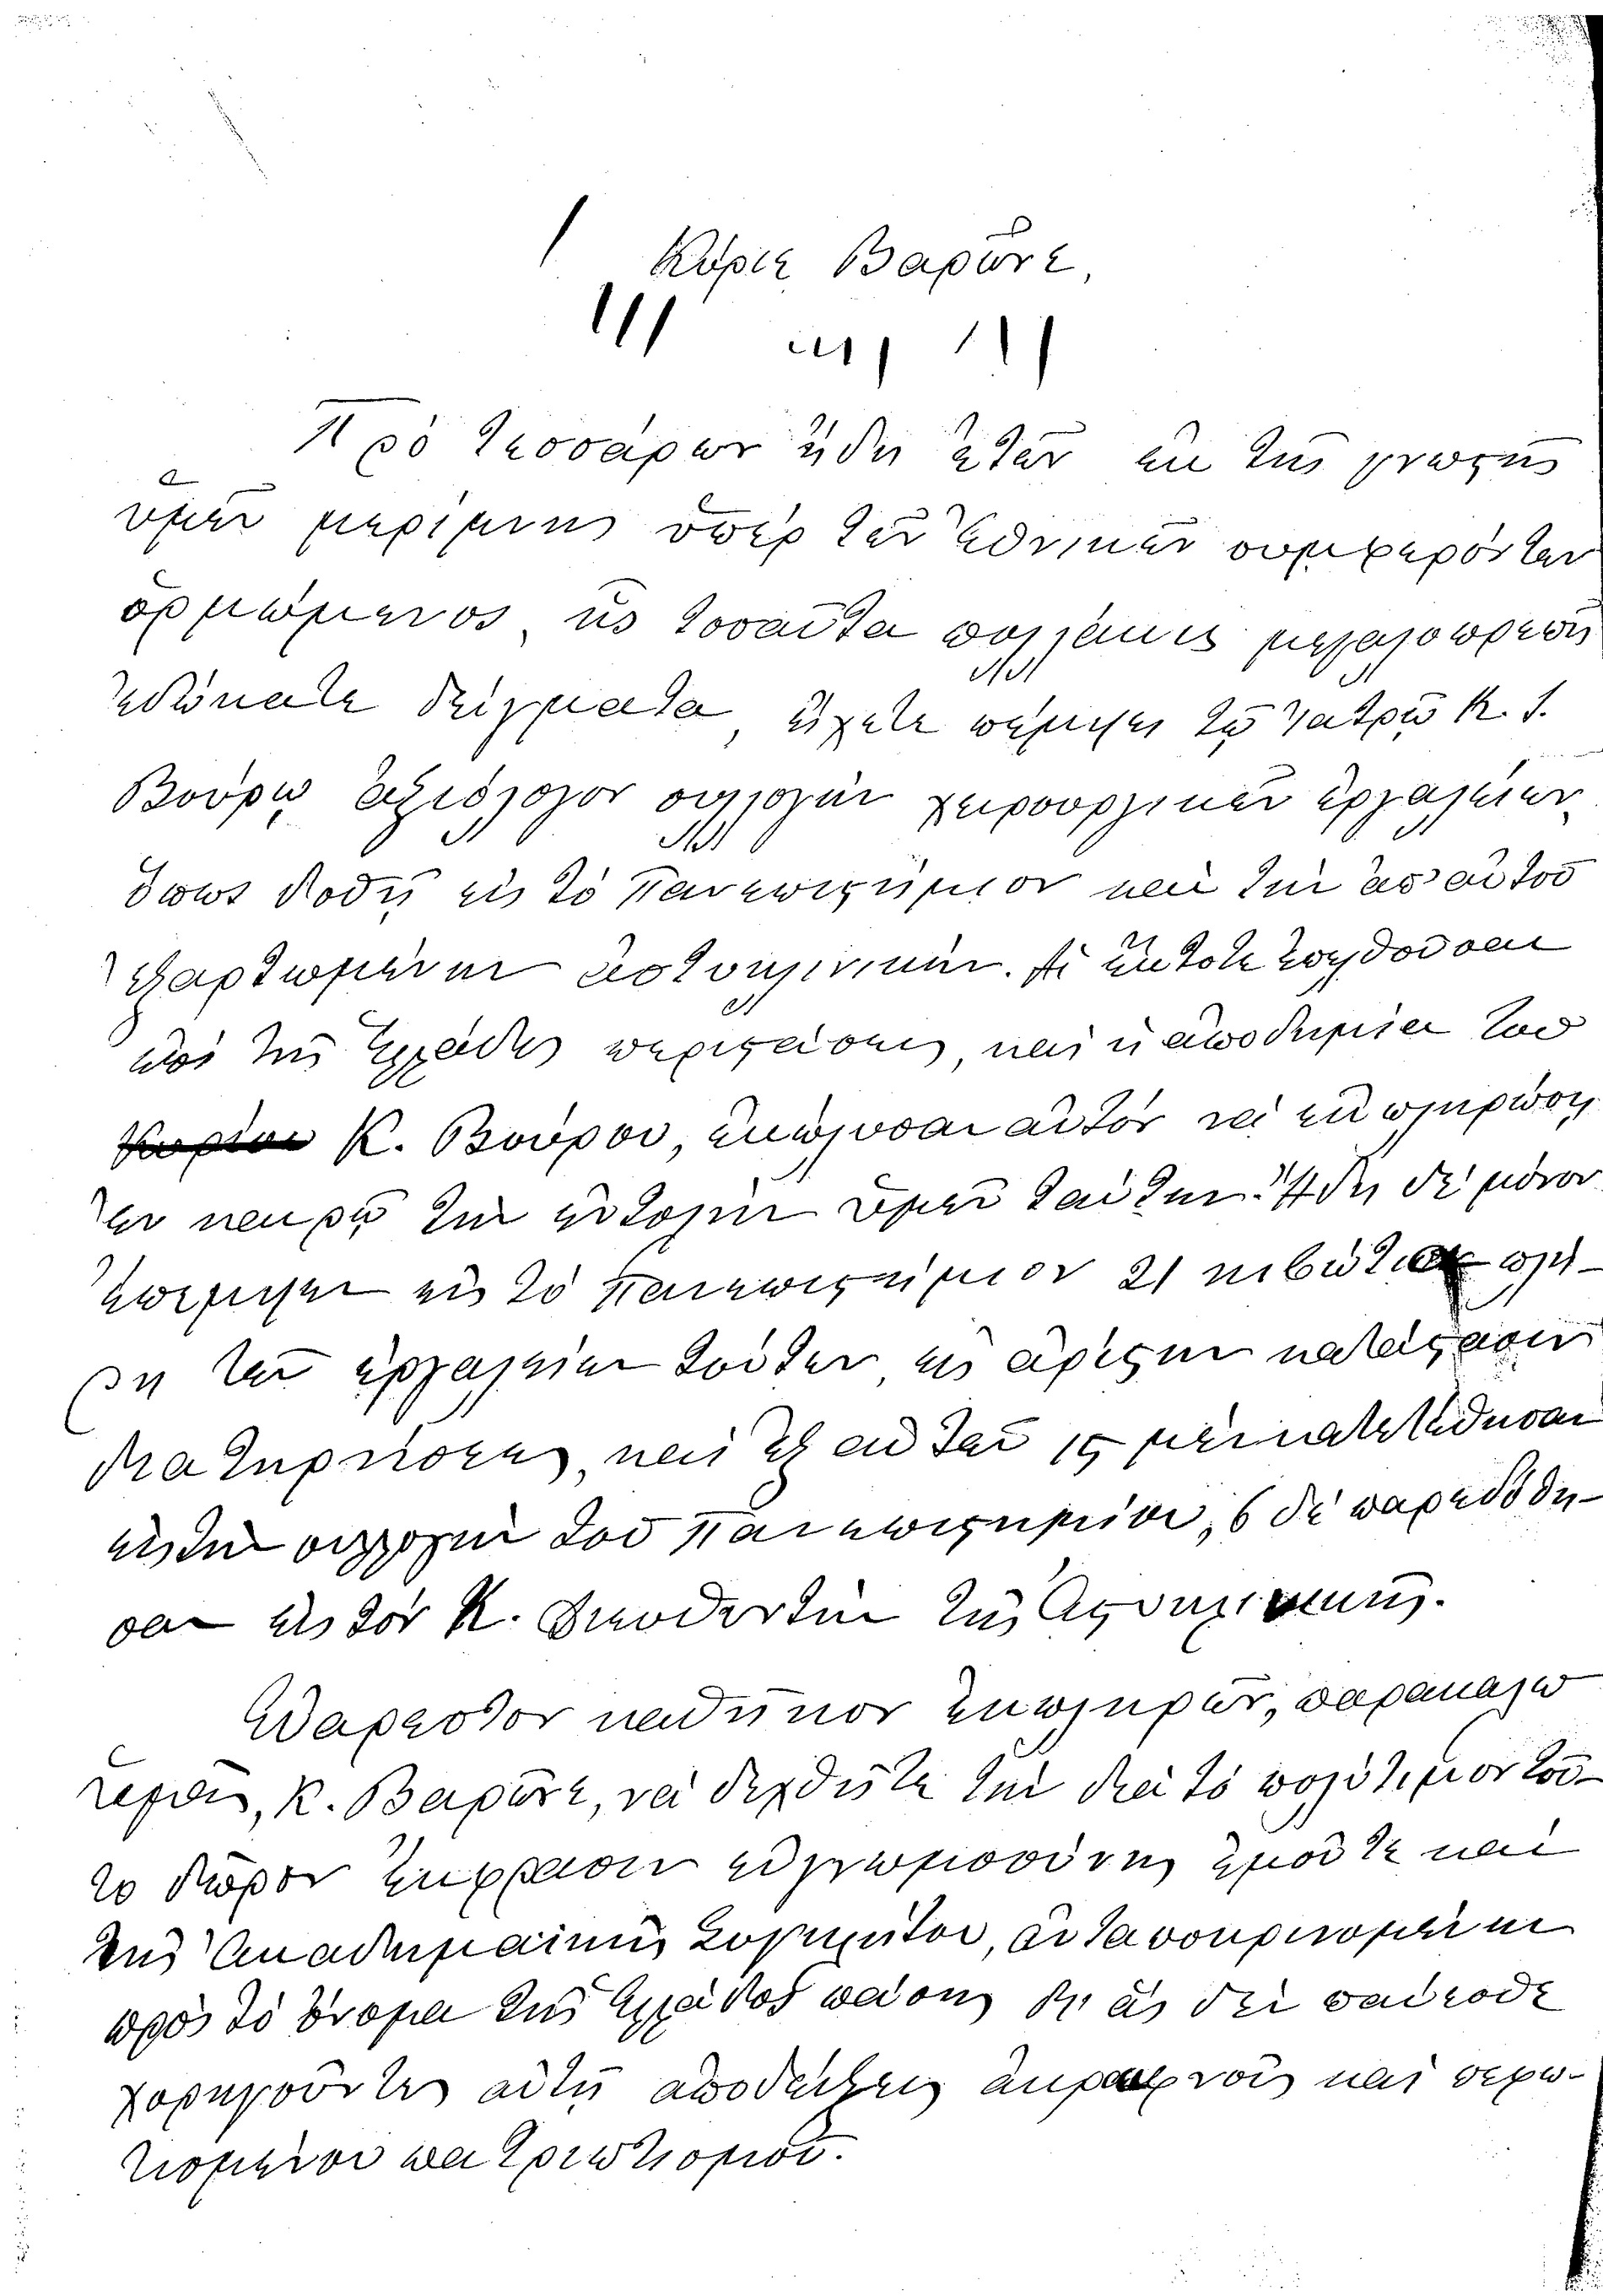 Κύριε Βαρῶνε,
Πρὸ τεσσάρων ἤδη ἐτῶν ἐκ τῆς γνωστῆς
ὑμῶν μερίμνης ὑπὲρ τῶν ἐθνικῶν συμφερόντων
ὁρμώμενος, ἧς τοσαῦτα πολλάκις μεγαλοπρεπῆ
ἐδώκατε δείγματα, εἴχετε πέμψει τῷ Ἰατρῷ Κ. Ι.
Βούρῳ ἀξιόλογον συλλογὴν χειρουργικῶν ἐργαλείων,
ὅπως δοθῇ εἰς τὸ Πανεπιστήμιον καὶ τὴν ἀπ' αὐτοῦ
ἐξαρτωμένην ἀστυκλινικήν. Αἱ ἔκτοτε ἐπελθοῦσαι
ἐπὶ τῆς Ἑλλάδος περιστάσεις, καὶ ἡ ἀποδημία τοῦ
Κ. Βούρου, ἐκώλυσαν αὐτὸν νὰ ἐκπληρώσῃ
ἐν καιρῷ τὴν ἐντολὴν ὑμῶν ταύτην. Ἤδη δὲ μόνον
ἔπεμψεν εἰς τὸ Πανεπιστήμιον 21 κιβώτια πλή-
ρη τῶν ἐργαλείων τούτων, εἰς ἀρίστην κατάστασιν
διατηρήσεως, καὶ ἐξ αὐτῶν 15 μὲν κατετέθησαν
εἰς τὴν συλλογὴν τοῦ Πανεπιστημίου, 6 δὲ παρεδόθη-
σαν εἰς τὸν Κ. Διευθυντὴν τῆς Ἀστυκλινικῆς.
Εὐάρεστον καθῆκον ἐκπληρῶν, παρακαλῶ
ὑμᾶς, Κ. Βαρῶνε, νὰ δεχθῆτε τὴν διὰ τὸ πολύτιμον τοῦ-
το δῶρον ἔκφρασιν εὐγνωμοσύνης ἐμοῦ τε καὶ
τῆς Ἀκαδημαϊκῆς Συγκλήτου, ἀνταποκρινομένην
πρὸς τὸ ὄνομα τῆς Ἑλλάδος πάσης δι' ἃς δὲν παύεσθε
χορηγοῦντες αὐτῇ ἀποδείξεις ἀκραιφνοῦς καὶ πεφω-
τισμένου πατριωτισμοῦ.